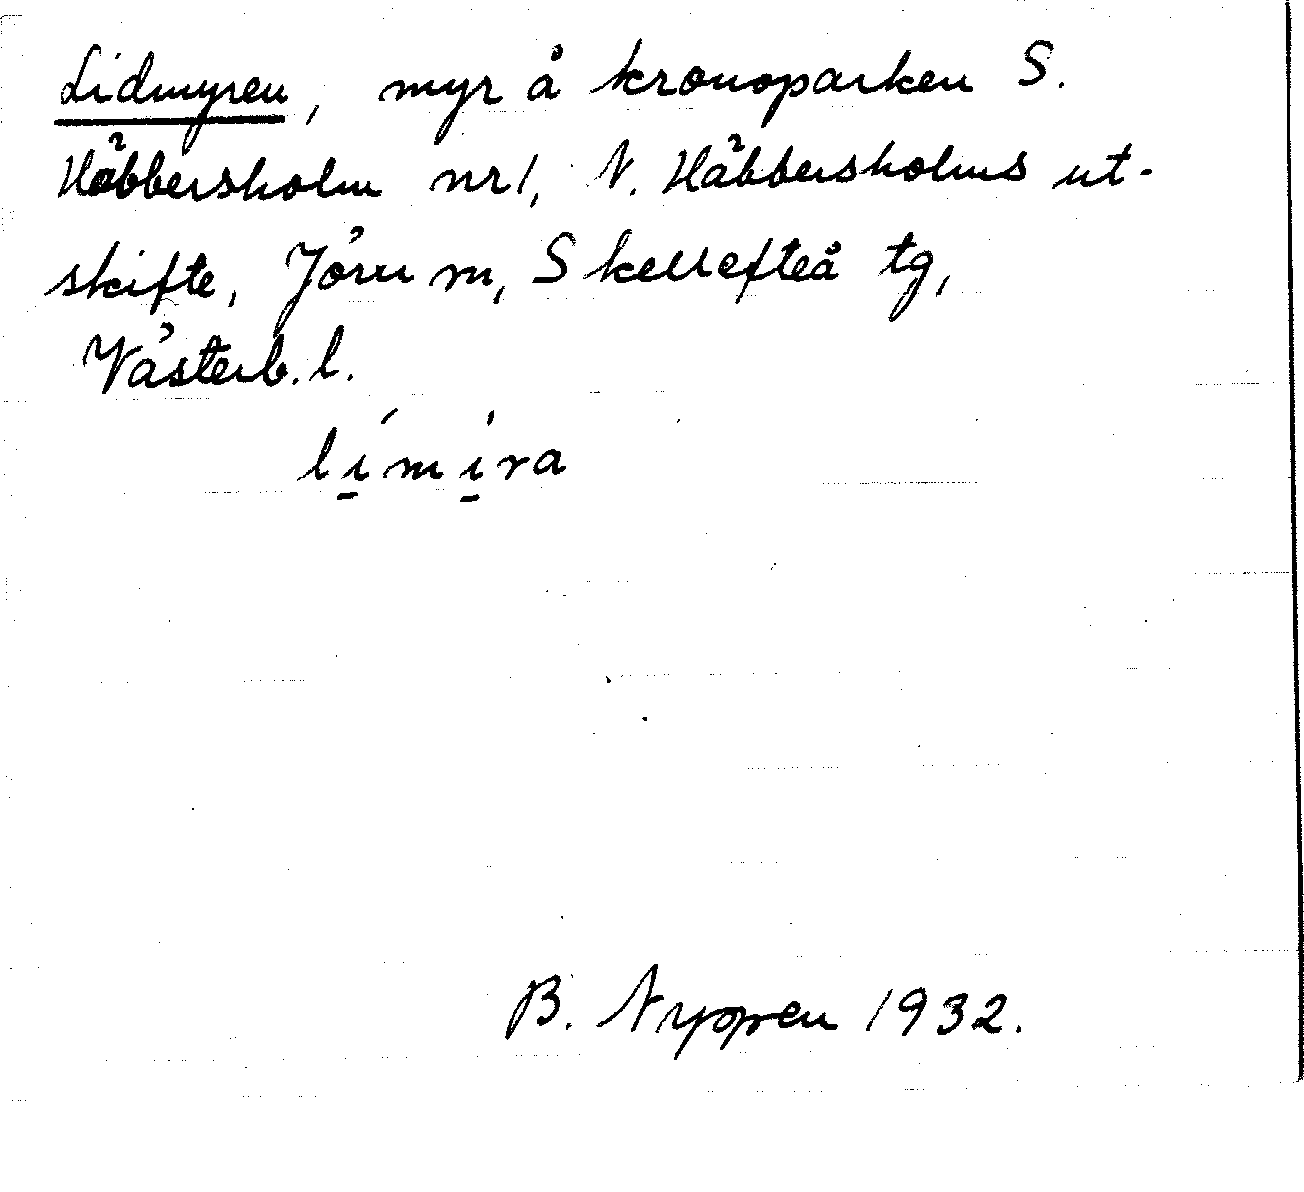 Lidmyren, myr å kronoparken S.
Häbbersholm nr 1, N. Häbbersholms ut-
skifte, Jörn sn, Skellefteå tg,
Västerb. l.
lí̱mí̱ra
B. Nyppen 1932.